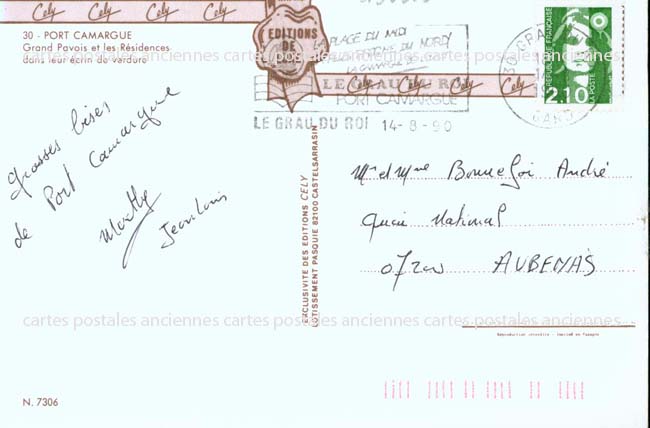 Cely Cely Cely
30 - PORT CAMARGUE
Grand Pavois et les Résidences
dans leur écrin de verdure
EDITIONS
DE
LA PLAGE DU MIDI
LE GRAU DU ROI
PORT CAMARGUE
LE GRAU DU ROI 14-8-90
Cely Cely Cely Cely
30
GARD
REPUBLIQUE FRANÇAISE
2,10
LA POSTE
Grosses bises
de Port Camargue
Jean Louis
EXCLUSIVITE DES EDITIONS CELY
LOTISSEMENT PASQUIE 82100 CASTELSARRASIN
Mr et Mme Bonnefoi André
Quai National
07200 AUBENAS
cartes postales anciennes cartes postales anciennes cartes postales anciennes
cartes postales anciennes cartes postales anciennes cartes postales anciennes
Reproduction interdite - Printed in Spain
N. 7306